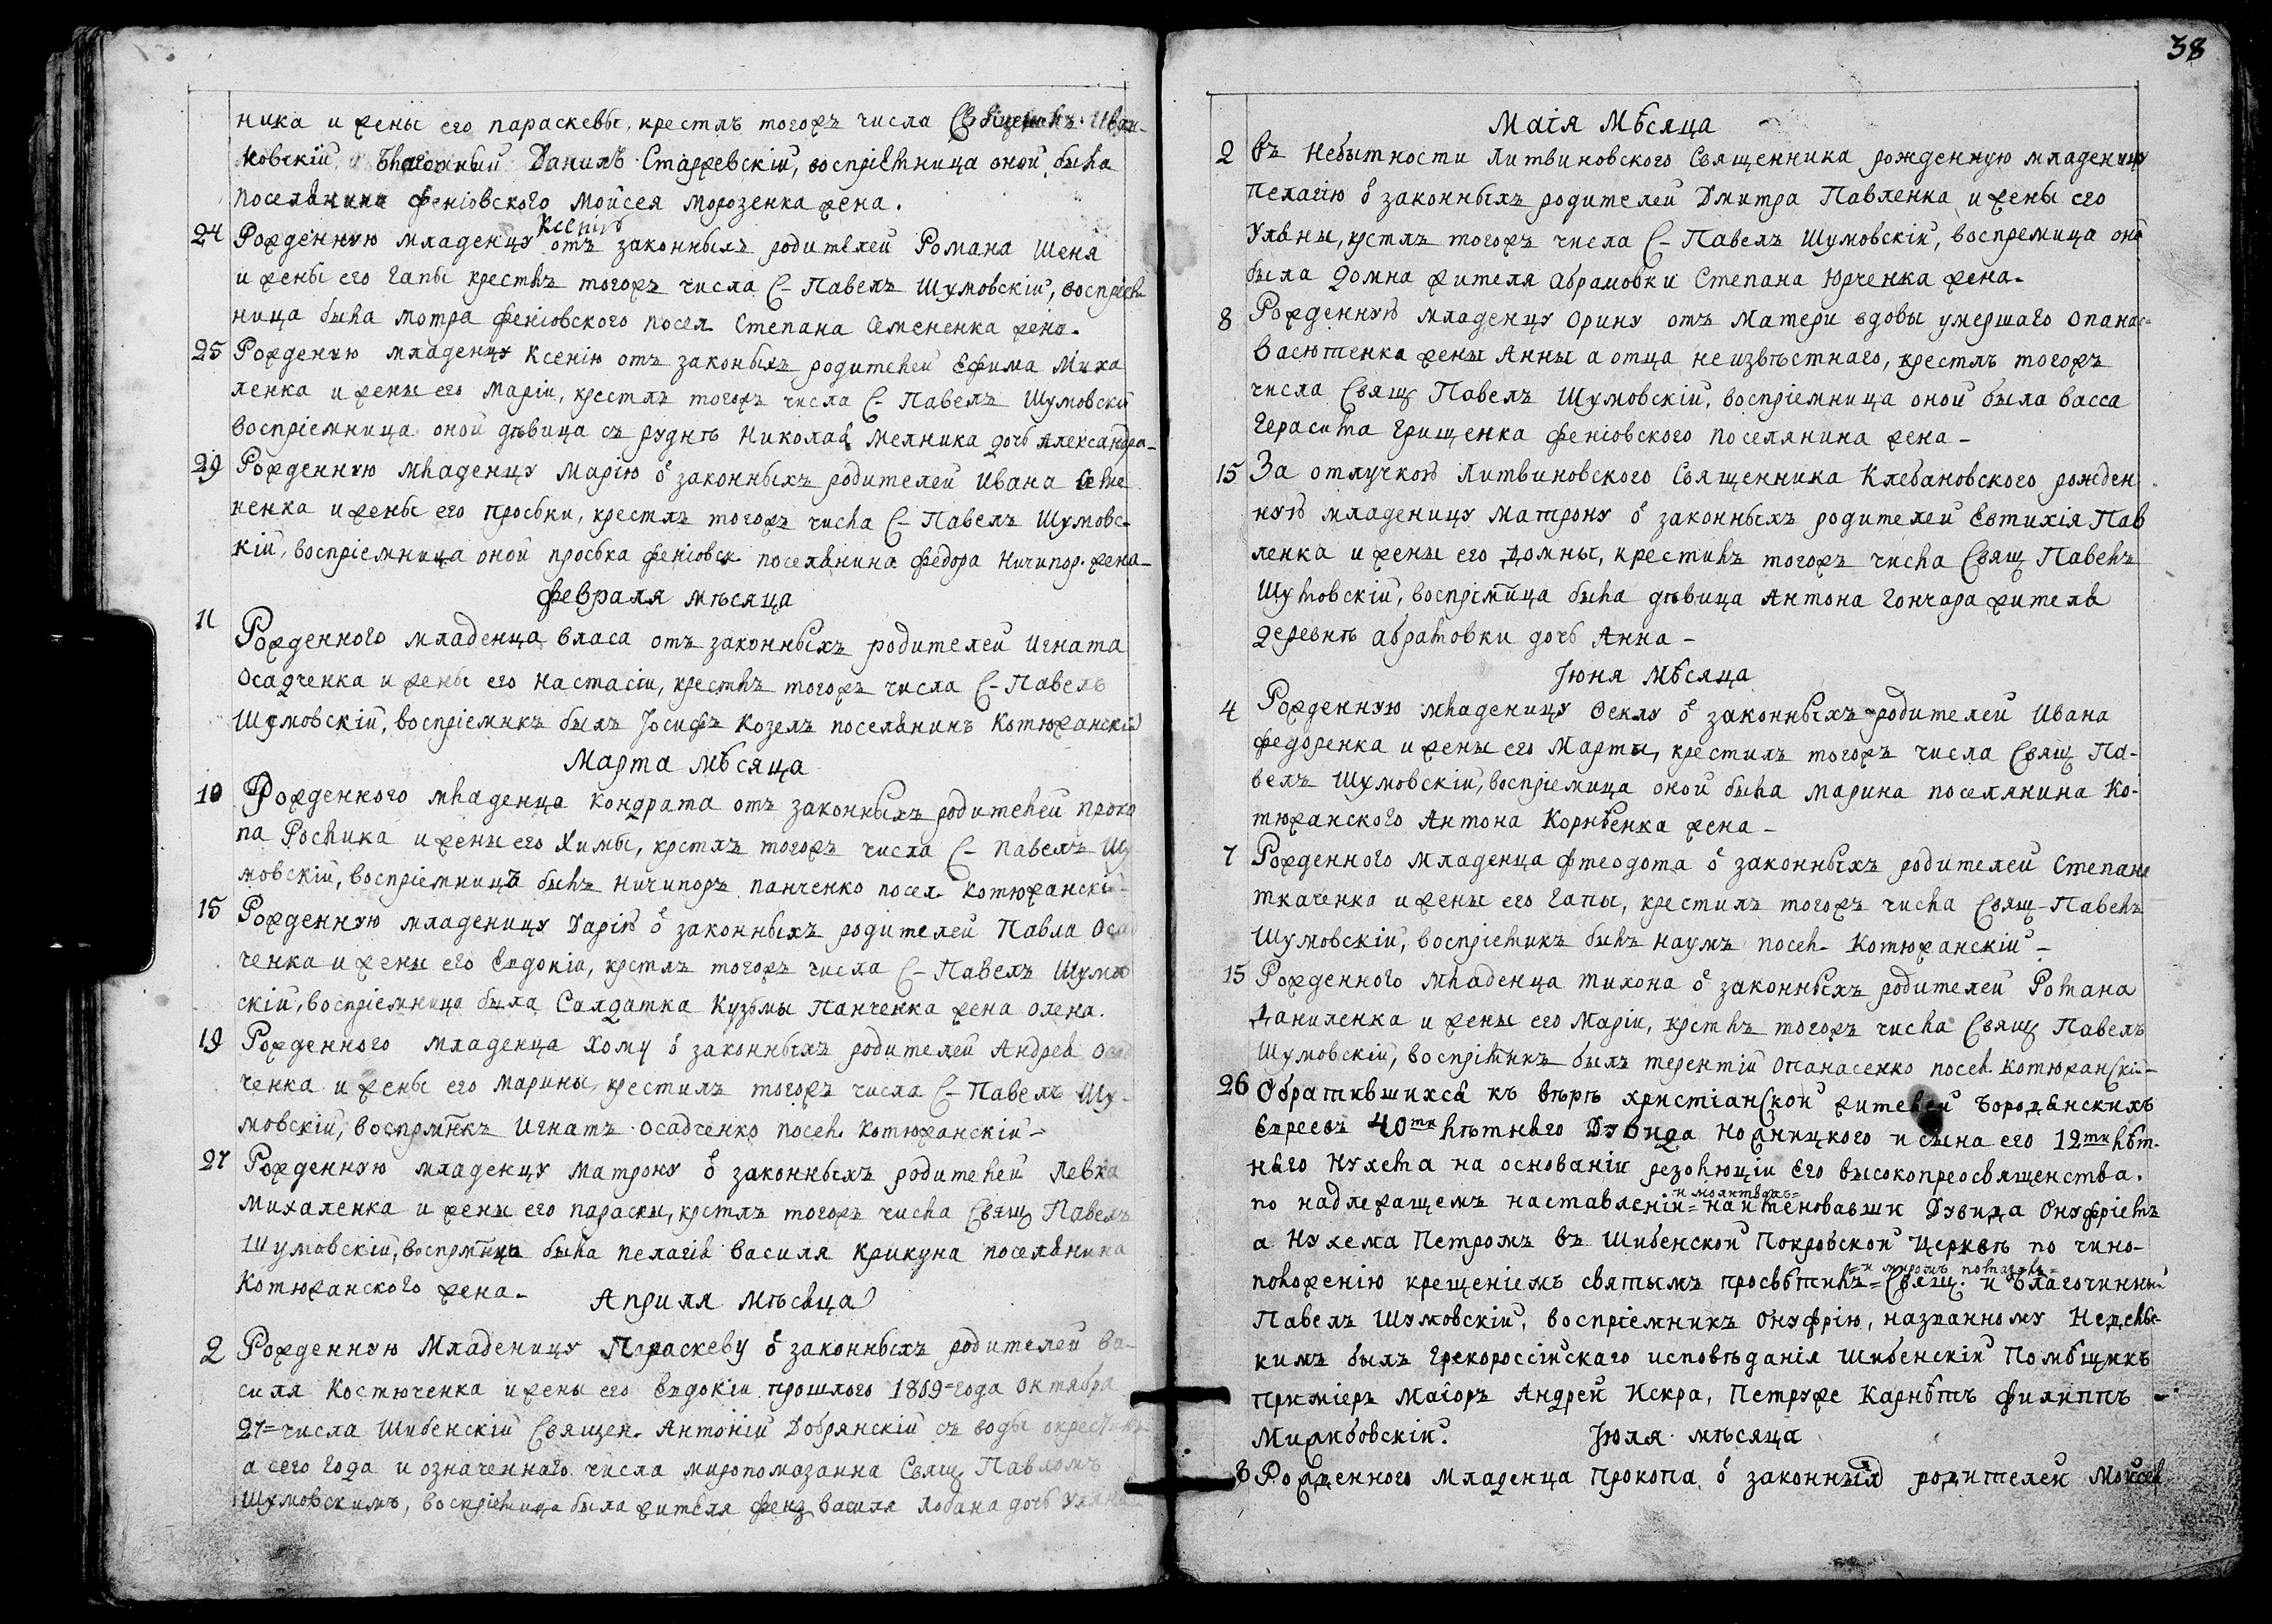 ника и жены его параскевы, крестлъ тогожъ числа
мовскій, и Данилъ Старжевскій, воспріємница оной была
поселянина феніовского Мойсея Морозенка жена.
24 Рожденную младенцу Ксенію отъ законныхъ родителей Романа Шеня
и жены его Гапы крестилъ тогожъ числа С- Павелъ Шумовскій, воспріем
ница была мотра феніовского посел. Степана Семененка жена.
25 Рожденую младенцу Ксенію отъ законыхъ родителей Ефима Миха
ленка и жены его Маріи, крестлъ тогожъ числа С- Павелъ Шумовскій
воспріемница оной дѣвица съ руднѣ Николая Мелника дочь Александра-
29 Рожденную младенцу Марію ѿ законныхъ родителей Ивана Семе
ненка и жены его проськи, крестлъ тогожъ числа С- Павелъ Шумовс-
кій, воспріемница оной проська феніовск поселянина Федора Ничипор. жена-
Февраля мѣсяца
11 Рожденного младенца власа отъ законныхъ родителей Игната
Осадченка и жены его настасіи, крестилъ тогожъ числа С- Павелъ
Шумовскій, воспріемикъ былъ Іосифъ Козелъ поселянинъ Котюжанскій
Марта мѣсяца
10 Рожденного младенца Кондрата отъ законныхъ родителей проко
па Рослика и жены его Химы, крстлъ тогожъ числа С- Павелъ Шу
мовскій, воспріемницъ былъ Ничипоръ панченко посел. Котюжанскій-
15 Рожденную младеницу Дарію ѿ законныхъ родителей Павла Осад
ченка и жены его Евдокіи, крстлъ тогожъ числа С- Павелъ Шумов
скій, воспріемница была Салдатка Кузьмы Панченка жена олена.
19 Рожденного младенца Хому ѿ законныхъ родителей Андрея Осад
ченка и жены его марины, крестилъ тогожъ числа С- Павелъ Шу-
мовскій, воспрмнкъ Игнатъ осадченко посел. Котюжанскій-
27 Рожденную младенцу матрону ѿ законныхъ родителей Левка
Михаленка и жены его параски, крстлъ тогожъ числа Свящ Павелъ
Шумовскій, воспрмнца была пелагія василя крикуна поселянина
Котюжанского жена.
Априля мѣсяца
2 Рожденную Младеницу Параскеву ѿ законныхъ родителей ва-
силя Костюченка и жены его Евдокіи прошлого 1809=года Октября
27= числа Шибенскій Священ. Антоній Добрянскій съ воды окрестилъ
а сего года и означеннаго числа миропомазанна Свящ Павломъ
Шумовскимъ, воспріемица была жителя василя лобана дочь Уляна
38
Маія Мѣсяца
2 въ Небытности Литвиновского Священника рожденную младеницу
Пелагію ѿ законныхъ родителей Дмитра Павленка и жены его
Уляны, крстлъ тогожъ числа С- Павелъ Шумовскій, воспремица оной
была Домна жителя абрамовки Степана Юрченка жена-
8 Рожденную младенцу Орину отъ матери вдовы умершаго Опанас-
Васютенка жены Анны а отца неизвѣстнаго, крестлъ тогожъ
числа Свящ Павелъ Шумовскій, воспріемница оной была васса
Герасима Грищенка феніовского поселянина жена-
15 За отлучкою Литвиновского Священника Клебановского рожден
ную младеницу Матрону ѿ законныхъ родителей Евтихія Пав
ленка и жены его Домны, крестилъ тогожъ числа Свящ Павелъ
Шумовскій, воспрімница была дѣвица Антона Гончара жителя
деревнѣ абрамовки дочь Анна-
Іюня Мѣсяца
4 Рожденную младеницу Феклу ѿ законныхъ родителей Ивана
Федоренка и жены его Марты, крестилъ тогожъ числа Свящ Па-
велъ Шумовскій, воспріемица оной была марина поселянина Ко-
тюжанского Антона Корнѣенка жена-
7 Рожденного младенца Фтеодота ѿ законныхъ родителей Степана
ткаченка и жены его Гапы, крестилъ тогожъ числа Свящ- Павелъ
Шумовскій, воспріемикъ былъ Наумъ посел- Котюжанскій-
15 Рожденного младенца тихона ѿ законныхъ родителей Романа
Даниленка и жены его Маріи, крстлъ тогожъ числа Свящ Павелъ
Шумовскій, воспрімнкъ былъ терентій Опанасенко посел. Котюжанскій-
26 Обратившихся къ вѣрѣ христіанской жителей Бородянскихъ
Евреевъ 40ти лѣтнаго Дувида и сына его 12ти лѣт-
наго Нухема на основаніи резолюціи Его высокопреосвященства.
по надлежащемъ наставленіи= и молитвахъ= наименовавши Дувида Онуфріемъ
а Нухема Петромъ въ Шибенской Покровской Церквѣ по чино-
положенію крещеніемъ святымъ просвѣтилъ= =и миромъ помазалъ= Свящ. и Благочинный
Павелъ Шумовскій, воспріемникъ Онуфрію, названному
кимъ былъ Грекороссійскаго исповѣданія Шибенскій Помѣщикъ
Примieръ Маіоръ Андрей Искра, Петруже Карнѣтъ Филиппъ

Іюля мѣсяца
8 Рожденного младенца Прокопа ѿ законныхъ родителей Мойсея